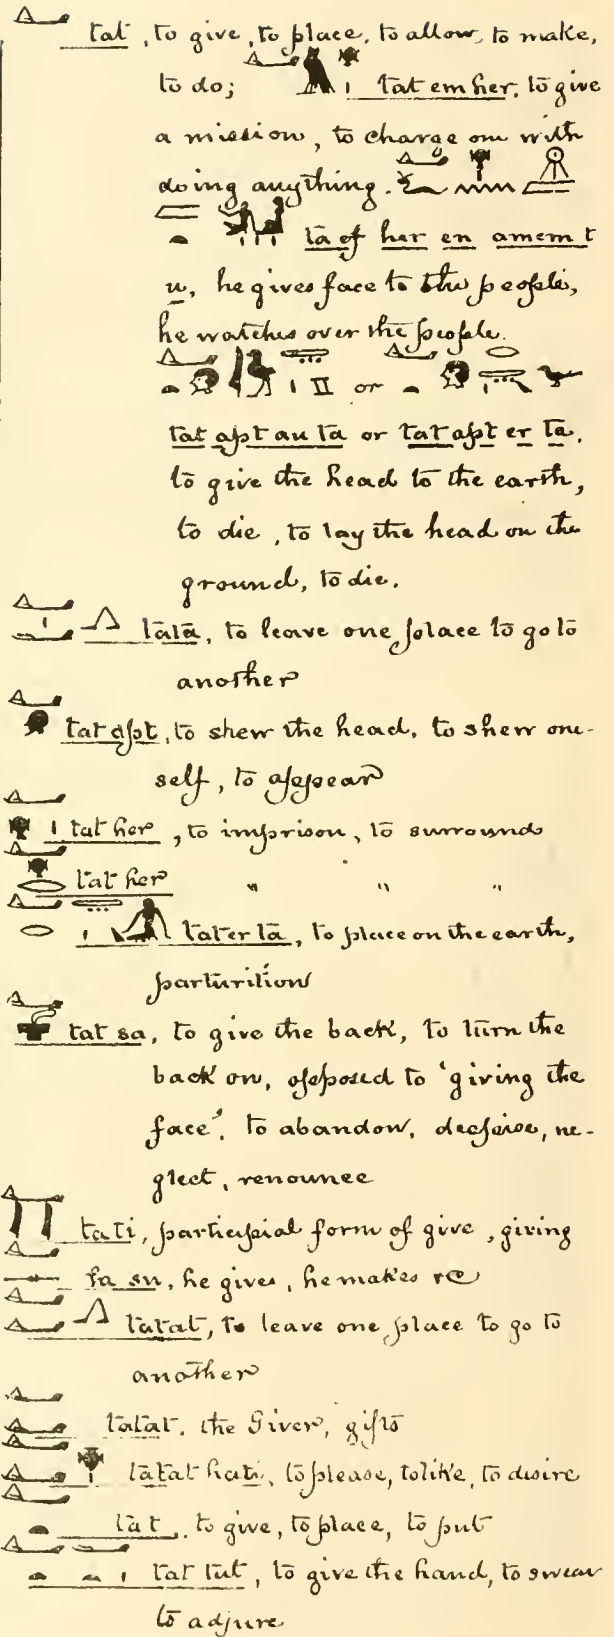 tat, to give, to place, to allow, to make,
to do; tat em her, to give
a mission, to charge one with
doing anything.
ta ef her en amem t
u, he gives face to the people,
he watches over the people.
or
tat apt au ta or tat apt er ta,
to give the head to the earth,
to die, to lay the head on the
ground, to die.
tata, to leave one place to go to
another
tat apt, to shew the head, to shew one-
self, to appear
tat her, to imprison, to surround
tat her " " "
tat er ta, to place on the earth,
parturition
tat sa, to give the back, to turn the
back on, opposed to 'giving the
face', to abandon, despise, ne-
glect, renounce
tati, participial form of give, giving
su, he gives, he makes
tatat, to leave one place to go to
another
tatat. the Giver, gifts
tatat hati, to please, to like, to desire
tat, to give, to place, to put
tat tut, to give the hand, to swear
to adjure